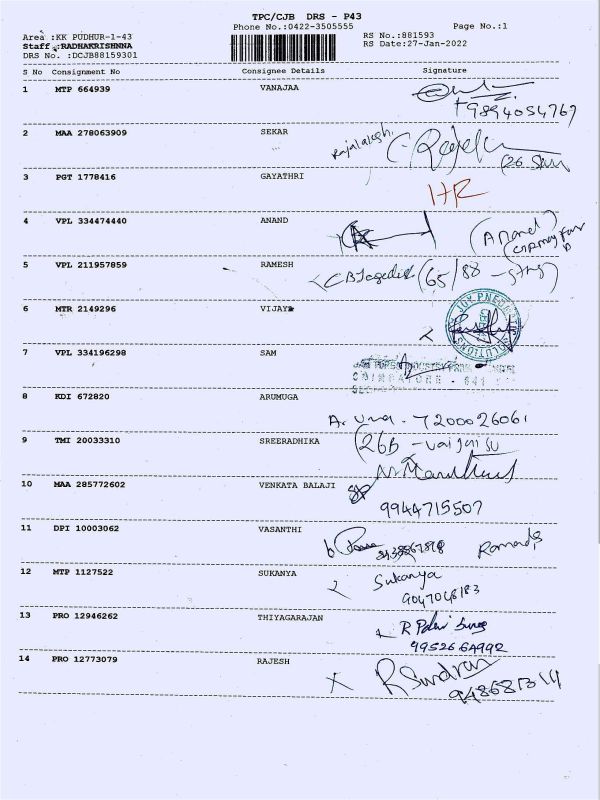 TPC/CJB DRS - P43
Phone No.:0422-3505555 Page No.:1
Area :KK PUDHUR-1-43 RS No.:881593
Staff :RADHAKRISHNNA RS Date:27-Jan-2022
DRS No. :DCJB88159301
S No Consignment No Consignee Details Signature
1 MTP 664939 VANAJAA
9894054767
2 MAA 278063909 SEKAR Rajalaksh.
(26 Sau
3 PGT 1778416 GAYATHRI HR
4 VPL 334474440 ANAND (Anand)
5 VPL 211957859 RAMESH (65/88
6 MTR 2149296 VIJAY JOY PNEUMATIC SOLUTIONS
7 VPL 334196298 SAM
COIMBATORE - 641
8 KDI 672820 ARUMUGA
A. Uma - 7200026061
9 TMI 20033310 SREERADHIKA (26B -
10 MAA 285772602 VENKATA BALAJI
9944715507
11 DPI 10003062 VASANTHI
12 MTP 1127522 SUKANYA Sukanya
9047048183
13 PRO 12946262 THIYAGARAJAN R
9952664992
14 PRO 12773079 RAJESH X R Sundran